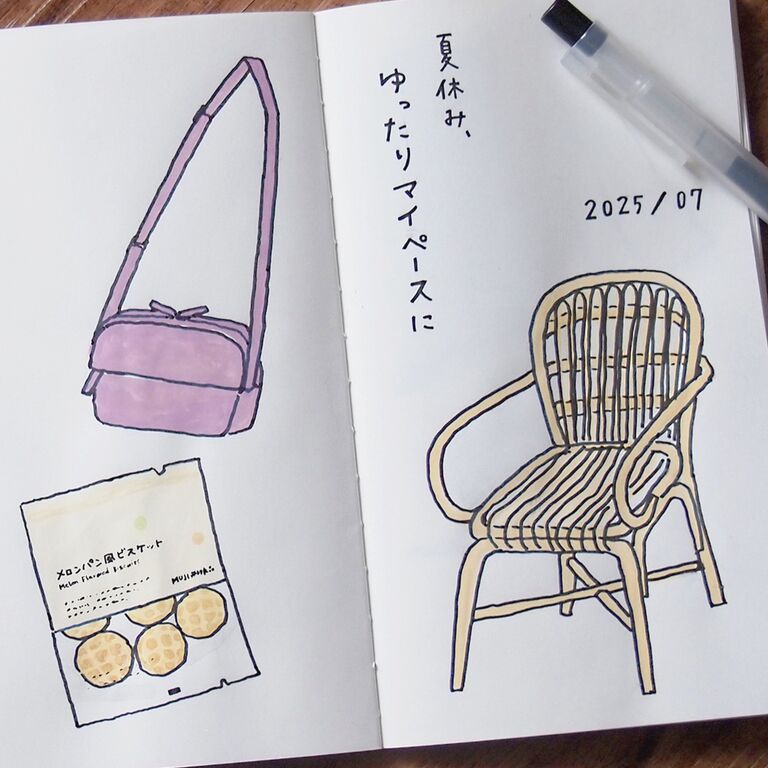 夏休み、
ゆったりマイペースに
2025/07
メロンパン風ビスケット
Melon Flavored Biscuits
MUJI 無印良品